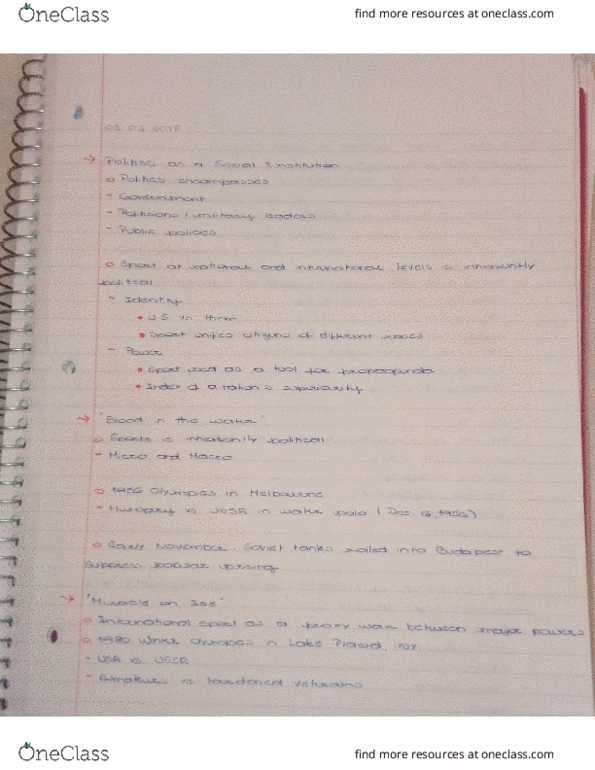 OneClass
find more resources at oneclass.com
03.02.2018
→ Politics as a Social Institution
o Politics encompasses
- Government
- Politicians / military leaders
- Public policies
o Sport at national and international levels is inherently
political
- Identity
• US vs them
• Sport unites citizens of different
- Power
• Sport used as a tool for propaganda
• Index of a nation's superiority
→ "Blood in the water"
o Sports is inherently political
- Micro and Macro
o 1956 Olympics in Melbourne
- Hungary vs USSR in water polo (Dec 6, 1956)
o Early November, Soviet tanks rolled into Budapest to
suppress popular uprising
→ "Miracle on Ice"
o International sport as a proxy war between major powers
o 1980 Winter Olympics in Lake Placid, NY
- USA vs USSR
- Amateurs vs hardened veterans
OneClass
find more resources at oneclass.com